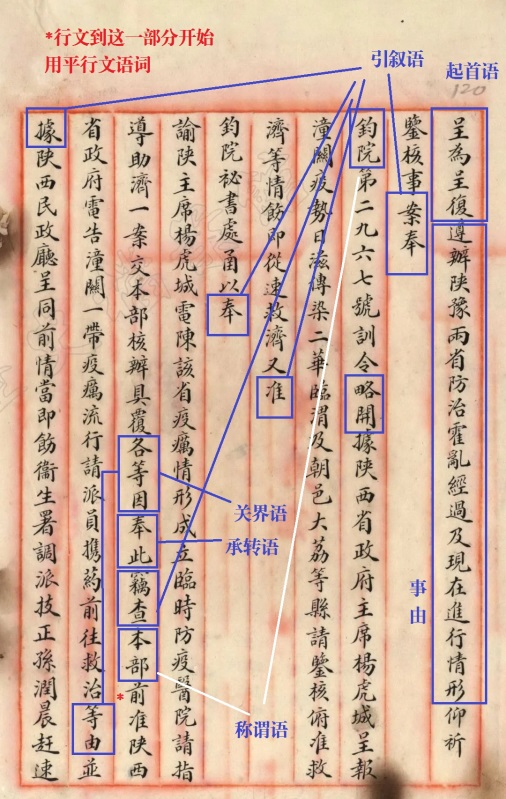 *行文到这一部分开始
用平行文语词
引叙语
起首语
120
呈為呈復遵辦陝豫兩省防治霍亂經過及現在進行情形仰祈
鑒核事案奉
鈞院第二九六七號訓令略開據陝西省政府主席楊虎城呈報
潼關疫勢日滋傳染二華臨渭及朝邑大荔等縣請鑒核俯准救
濟等情飭即從速救濟又准
鈞院祕書處函以奉
諭陝主席楊虎城電陳該省疫癘情形成立臨時防疫醫院請指
導助濟一案交本部核辦具覆各等因奉此竊查本部前准陝西
省政府電告潼關一帶疫癘流行請派員攜藥前往救治等由並
據陝西民政廳呈同前情當即飭衞生署調派技正孫潤晨赶速
关界语
承转语
事由
*
称谓语